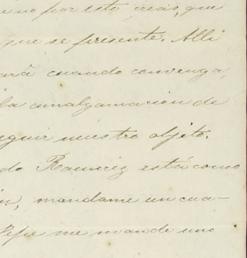 no por esto creas, que
que se presente. Alli
ará cuando convenga,
la amalgamacion de
eguir nuestro objeto.
do Ramirez está como
, mandame un cua-
Pepe me mande uno